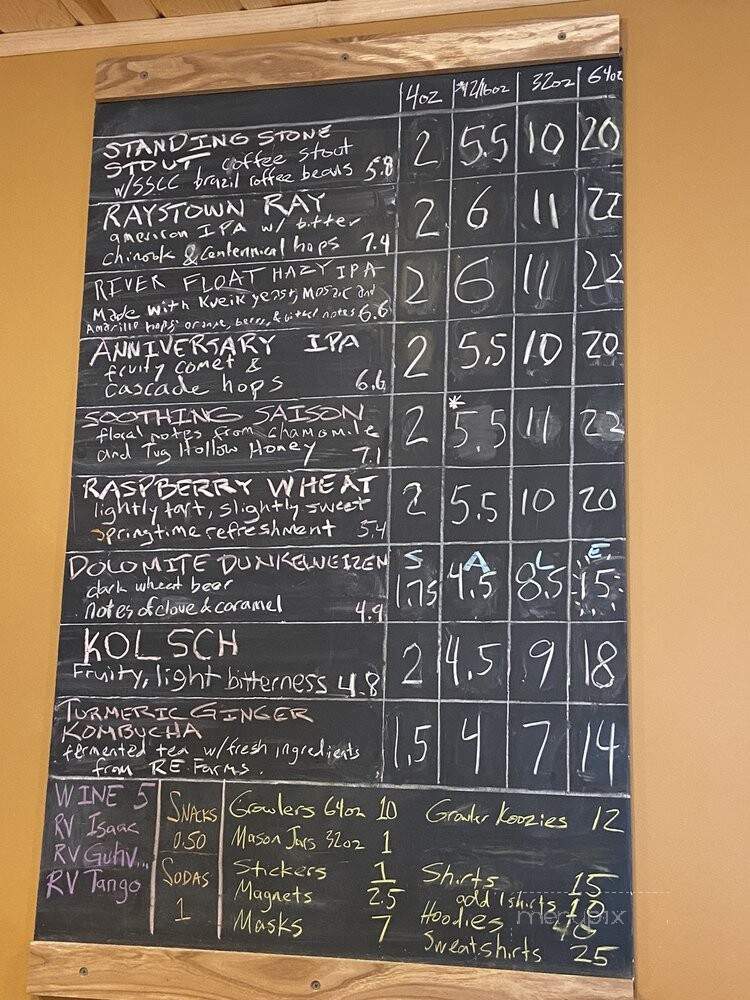 4oz *12/16oz 32oz 64oz
STANDING STONE
STOUT coffee stout
w/SSCC brazil coffee beans 5.8 2 5.5 10 20
RAYSTOWN RAY
american IPA w/ bitter
chinook & Centennical hops 7.4 2 6 11 22
RIVER FLOAT HAZY IPA
Made with Kveik yeast, Mosaic and
Amarillo hops; orange, berry, & bitter notes 6.6 2 6 11 22
ANNIVERSARY IPA
fruity comet &
cascade hops 6.6 2 5.5 10 20
SOOTHING SAISON
floral notes from chamomile
and Tug Hollow Honey 7.1 2 *5.5 11 22
RASPBERRY WHEAT
lightly tart, slightly sweet
springtime refreshment 5.4 2 5.5 10 20
DOLOMITE DUNKELWEIZEN S A L E
dark wheat beer
notes of clove & caramel 4.9 1.75 4.5 8.5 15
KOLSCH
Fruity, light bitterness 4.8 2 4.5 9 18
TURMERIC GINGER
KOMBUCHA
fermented tea w/fresh ingredients
from RE Farms. 1.5 4 7 14
WINE 5
RV Isaac
RV Guhv...
RV Tango
SNACKS
0.50
SODAS
1
Growlers 64oz 10
Mason Jars 32oz 1
Stickers 1
Magnets 2.5
Masks 7
Growler Koozies 12
Shirts 15
add'l shirts 10
Hoodies 40
Sweatshirts 25
menupix